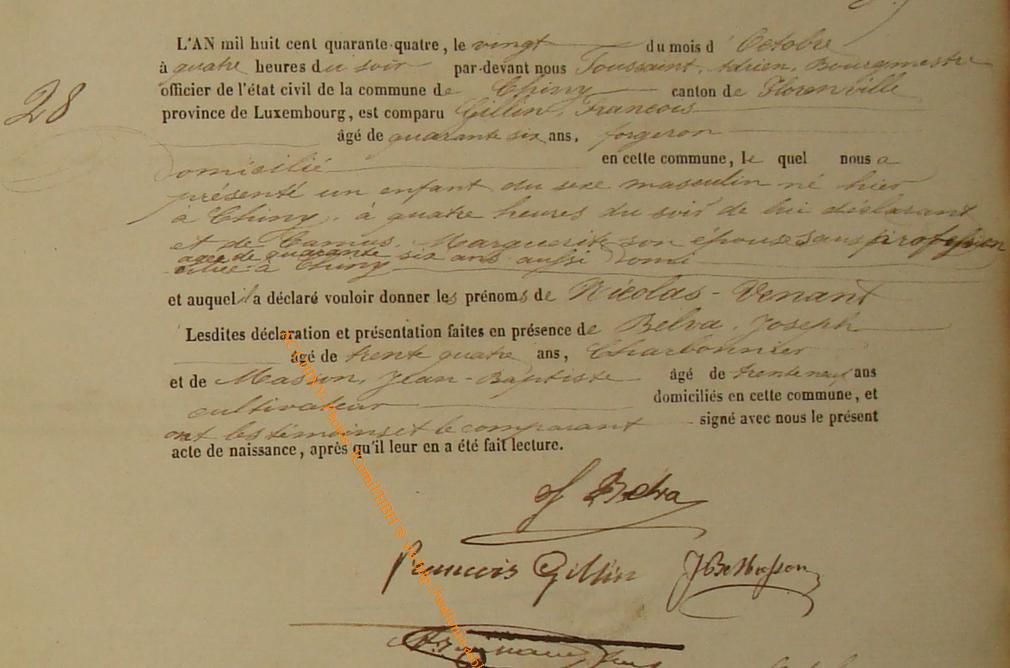 28
L'AN mil huit cent quarante-quatre, le vingt du mois d' Octobre
à quatre heures du soir par-devant nous Toussaint, Adrien, Bourgmestre
officier de l'état civil de la commune de Chiny canton de Florenville
province de Luxembourg, est comparu Gillin, Francois
âgé de quarante six ans, forgeron
Domicilié en cette commune, le quel nous a
présenté un enfant du sexe masculin né hier
à Chiny, à quatre heures du soir de lui déclarant
et de Camus, Marguerite son épouse sans profession
agée de quarante six ans aussi domi
ciliée à Chiny
et auquel il a déclaré vouloir donner les prénoms de Nicolas-Venant
Lesdites déclaration et présentation faites en présence de Belva, Joseph
âgé de trente quatre ans, Charbonnier
et de Masson, Jean-Baptiste âgé de trente neuf ans
cultivateur domiciliés en cette commune, et
ont les témoins et le comparant signé avec nous le présent
acte de naissance, après qu'il leur en a été fait lecture.
J Belva
Francois Gillin JBte Masson